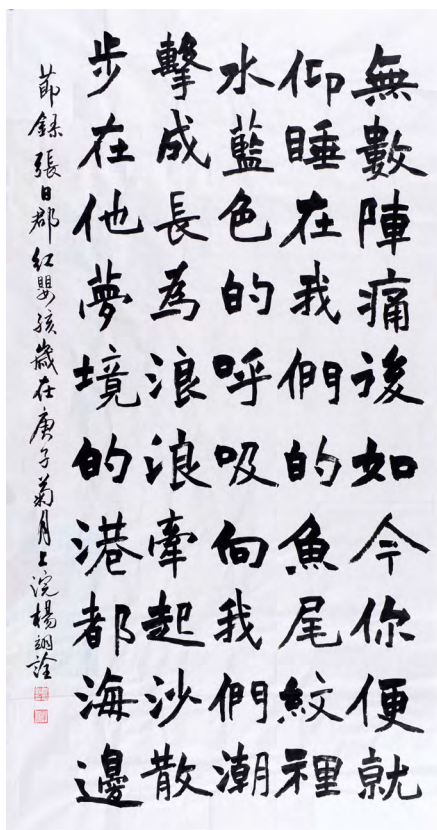 無數陣痛後如今你便就
仰睡在我們的魚尾紋裡
水藍色的呼吸向我們潮
擊成長為浪浪牽起沙散
步在他夢境的港都海邊
節錄張日郡紅嬰孩歲在庚子菊月上浣楊翊詮